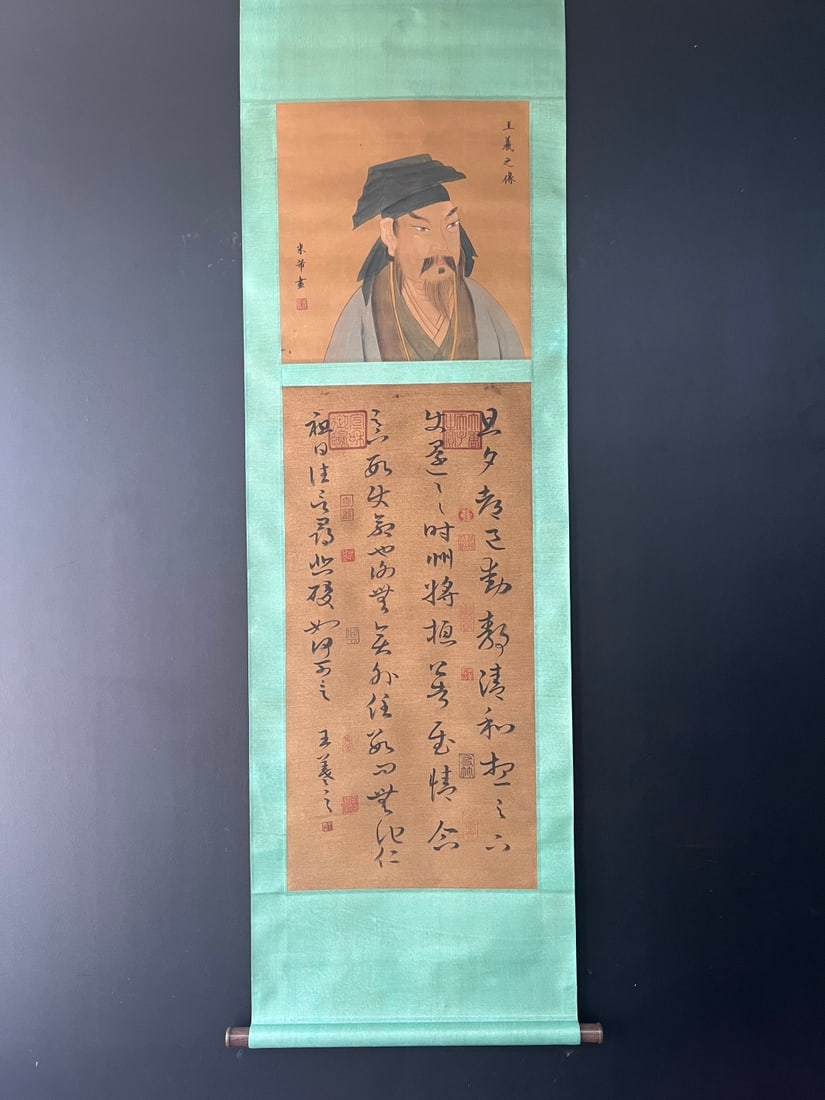 王羲之像
米芾畫
旦夕都邑動静清和想足下
使還一一时州將桓公告慰情企
足下數使命也謝無奕外任數問無他仁
祖日往言尋悲酸如何可言
王羲之